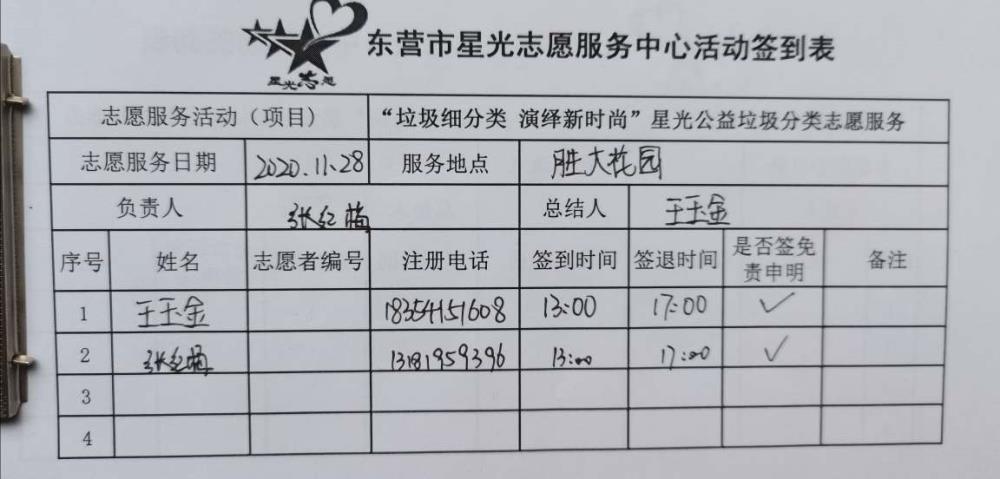 星光志愿
东营市星光志愿服务中心活动签到表
志愿服务活动（项目） “垃圾细分类 演绎新时尚”星光公益垃圾分类志愿服务
志愿服务日期 2020.11.28 服务地点 胜大花园
负责人 张红梅 总结人 王玉金
序号 姓名 志愿者编号 注册电话 签到时间 签退时间 是否签免责申明 备注
1 王玉金 18354151608 13:00 17:00 ✓
2 张红梅 13181959396 13:00 17:00 ✓
3
4